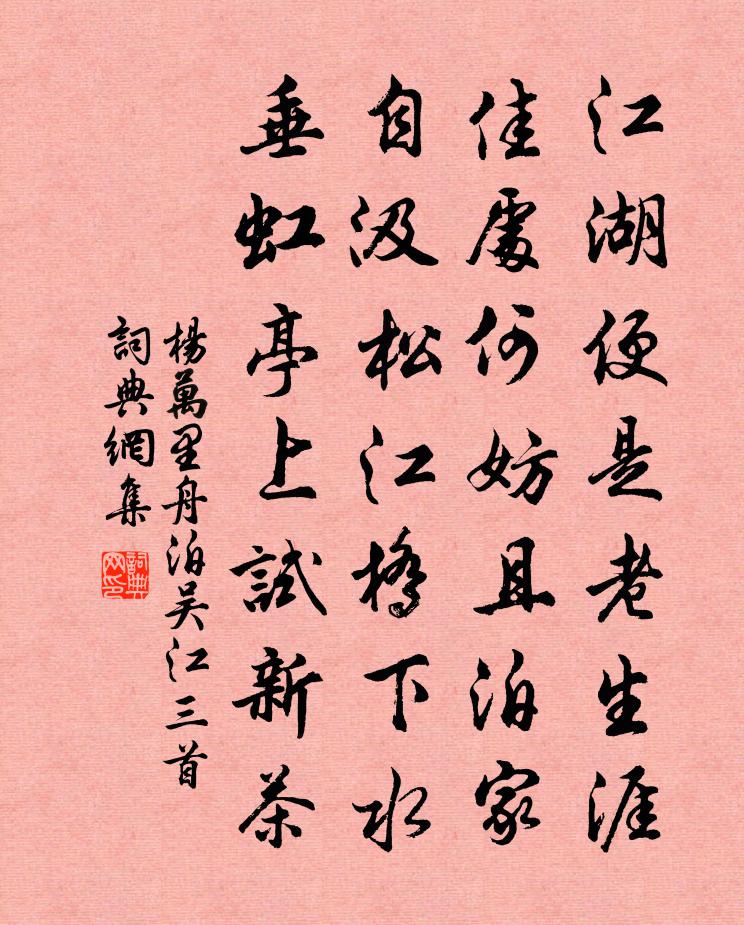 江湖便是老生涯
佳處何妨且泊家
自汲松江橋下水
垂虹亭上試新茶
楊萬里舟泊吳江三首
詞典網集
詞典網印